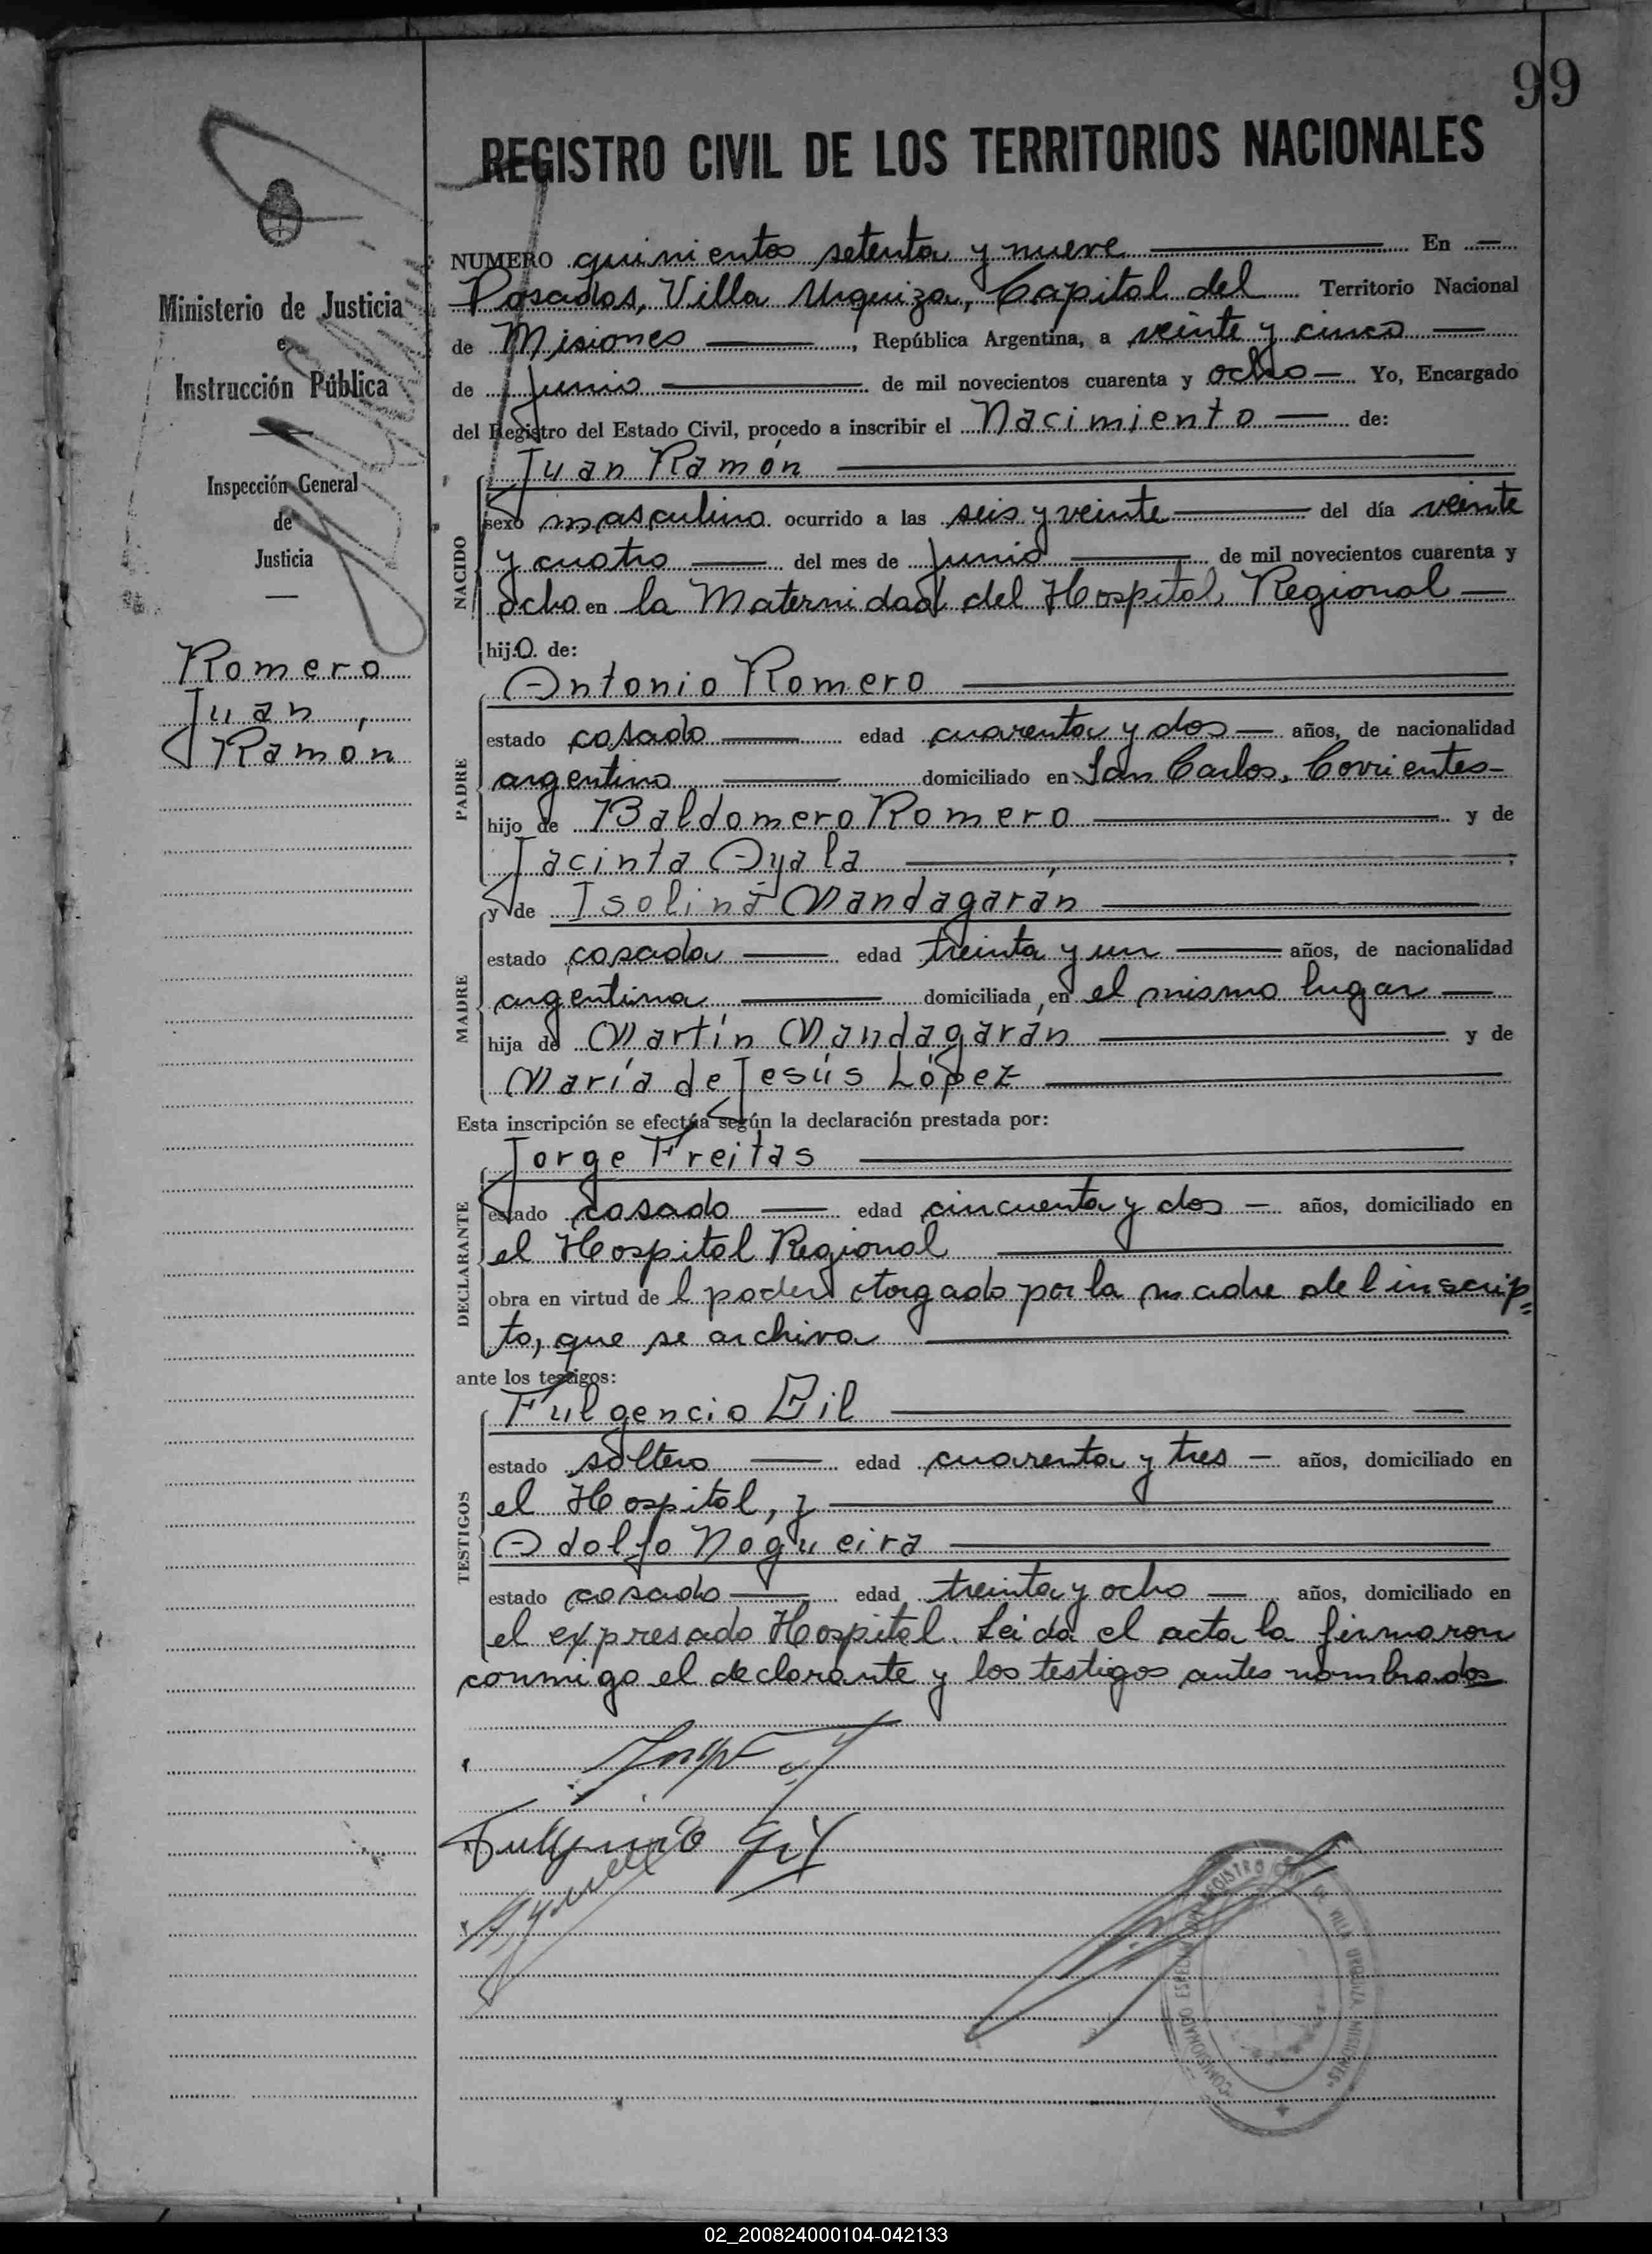 99
REGISTRO CIVIL DE LOS TERRITORIOS NACIONALES
Ministerio de Justicia
e
Instrucción Pública
Inspección General
de
Justicia
Romero
Juan,
Ramón
NUMERO quinientos setenta y nueve En
Posadas, Villa Urquiza, Capital del Territorio Nacional
de Misiones, República Argentina, a veinte y cinco
de junio de mil novecientos cuarenta y ocho Yo, Encargado
del Registro del Estado Civil, procedo a inscribir el Nacimiento de:
NACIDO
Juan Ramón
sexo masculino ocurrido a las seis y veinte del día veinte
y cuatro del mes de junio de mil novecientos cuarenta y
ocho en la Maternidad del Hospital Regional
hijo de:
PADRE
Antonio Romero
estado casado edad cuarenta y dos años, de nacionalidad
argentino domiciliado en San Carlos, Corrientes
hijo de Baldomero Romero y de
Jacinta Ayala
MADRE
y de Isolina Mandagaran
estado casada edad treinta y un años, de nacionalidad
argentina domiciliada en el mismo lugar
hija de Martín Mandagarán y de
María de Jesús López
Esta inscripción se efectúa según la declaración prestada por:
DECLARANTE
Jorge Freitas
estado casado edad cincuenta y dos años, domiciliado en
el Hospital Regional
obra en virtud de l poder otorgado por la madre del inscrip=
to, que se archiva
ante los testigos:
TESTIGOS
Fulgencio Gil
estado soltero edad cuarenta y tres años, domiciliado en
el Hospital, y
Adolfo Nogueira
estado casado edad treinta y ocho años, domiciliado en
el expresado Hospital. Leida el acta la firmaron
conmigo el declarante y los testigos antes nombrados
Fulgencio Gil
COMISIONADO ESPECIAL DEL REGISTRO CIVIL DE VILLA URQUIZA. MISIONES
02_200824000104-042133